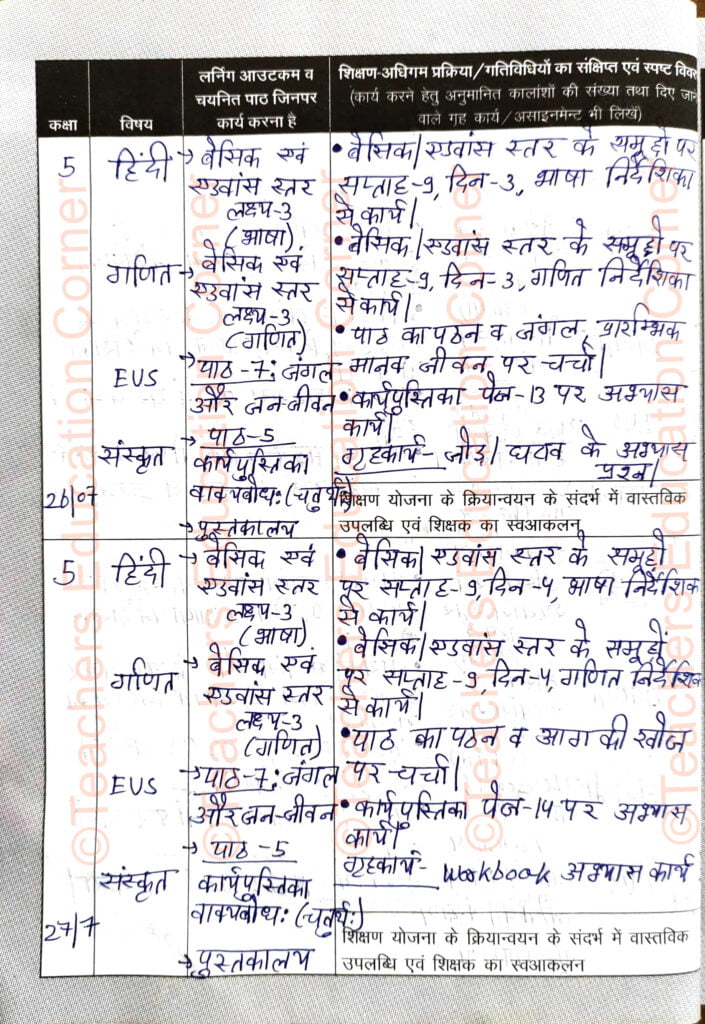 कक्षा
विषय
लर्निंग आउटकम व
चयनित पाठ जिनपर
कार्य करना है
शिक्षण-अधिगम प्रक्रिया/गतिविधियों का संक्षिप्त एवं स्पष्ट
(कार्य करने हेतु अनुमानित कालांशों की संख्या तथा दिए
वाले गृह कार्य/असाइनमेन्ट भी लिखें)
5
हिंदी
→ बेसिक एवं
एडवांस स्तर
लक्ष्य-3
(भाषा)
• बेसिक/एडवांस स्तर के समूहों पर
सप्ताह-9, दिन-3, भाषा निर्देशिका
से कार्य।
गणित
→ बेसिक एवं
एडवांस स्तर
लक्ष्य-3
(गणित)
• बेसिक/एडवांस स्तर के समूहों पर
सप्ताह-9, दिन-3, गणित निर्देशिका
से कार्य।
EVS
→ पाठ-7: जंगल
और जन-जीवन
• पाठ का पठन व जंगल, प्रारम्भिक
मानव जीवन पर चर्चा।
संस्कृत
→ पाठ-5
कार्यपुस्तिका
वाक्यबोध: (चतुर्थ:)
→ पुस्तकालय
• कार्यपुस्तिका पेज-13 पर अभ्यास
कार्य।
गृहकार्य- जोड़/घटाव के अभ्यास
प्रश्न।
26/07
शिक्षण योजना के क्रियान्वयन के संदर्भ में वास्तविक
उपलब्धि एवं शिक्षक का स्वआकलन
5
हिंदी
→ बेसिक एवं
एडवांस स्तर
लक्ष्य-3
(भाषा)
• बेसिक/एडवांस स्तर के समूहों
पर सप्ताह-9, दिन-4, भाषा निर्देशिक
से कार्य।
गणित
→ बेसिक एवं
एडवांस स्तर
लक्ष्य-3
(गणित)
• बेसिक/एडवांस स्तर के समूहों
पर सप्ताह-9, दिन-4, गणित
से कार्य।
EVS
→ पाठ-7: जंगल
और जन-जीवन
• पाठ का पठन व आग की खोज
पर चर्चा।
संस्कृत
→ पाठ-5
कार्यपुस्तिका
वाक्यबोध: (चतुर्थ:)
→ पुस्तकालय
• कार्यपुस्तिका पेज-14 पर अभ्यास
कार्य।
गृहकार्य- workbook अभ्यास कार्य
27/7
शिक्षण योजना के क्रियान्वयन के संदर्भ में वास्तविक
उपलब्धि एवं शिक्षक का स्वआकलन
©Teachers Education Corner
©Teachers Education Corner
©Teachers Education Corner
©Teachers Education Corner